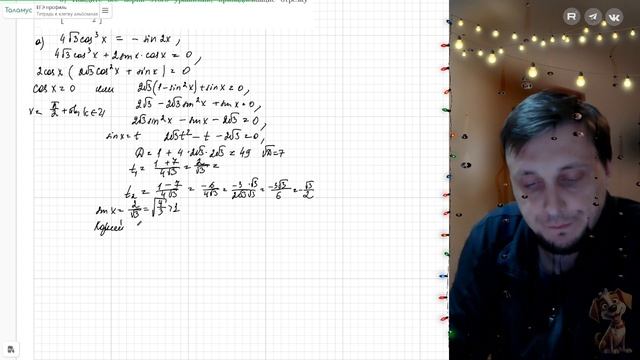 Толамус
ЕГЭ профиль
Тетрадь в клетку альбомная
а) 4√3cos³x = - sin 2x,
4√3 cos³x + 2sinx·cosx = 0,
2cosx (2√3cos²x + sinx) = 0
cosx = 0 или 2√3(1-sin²x)+sinx=0,
x = π/2 + πk, k∈Z; 2√3 - 2√3sin²x + sinx = 0,
2√3sin²x - sinx - 2√3 = 0,
sinx = t 2√3t² - t - 2√3 = 0,
D = 1 + 4·2√3·2√3 = 49 √D = 7
t₁ = (1+7)/(4√3) = 2/√3 =
t₂ = (1-7)/(4√3) = -6/(4√3) = (-3·√3)/(2√3·√3) = -3√3/6 = -√3/2
sin x = 2/√3 = √(4/3) > 1
Корней